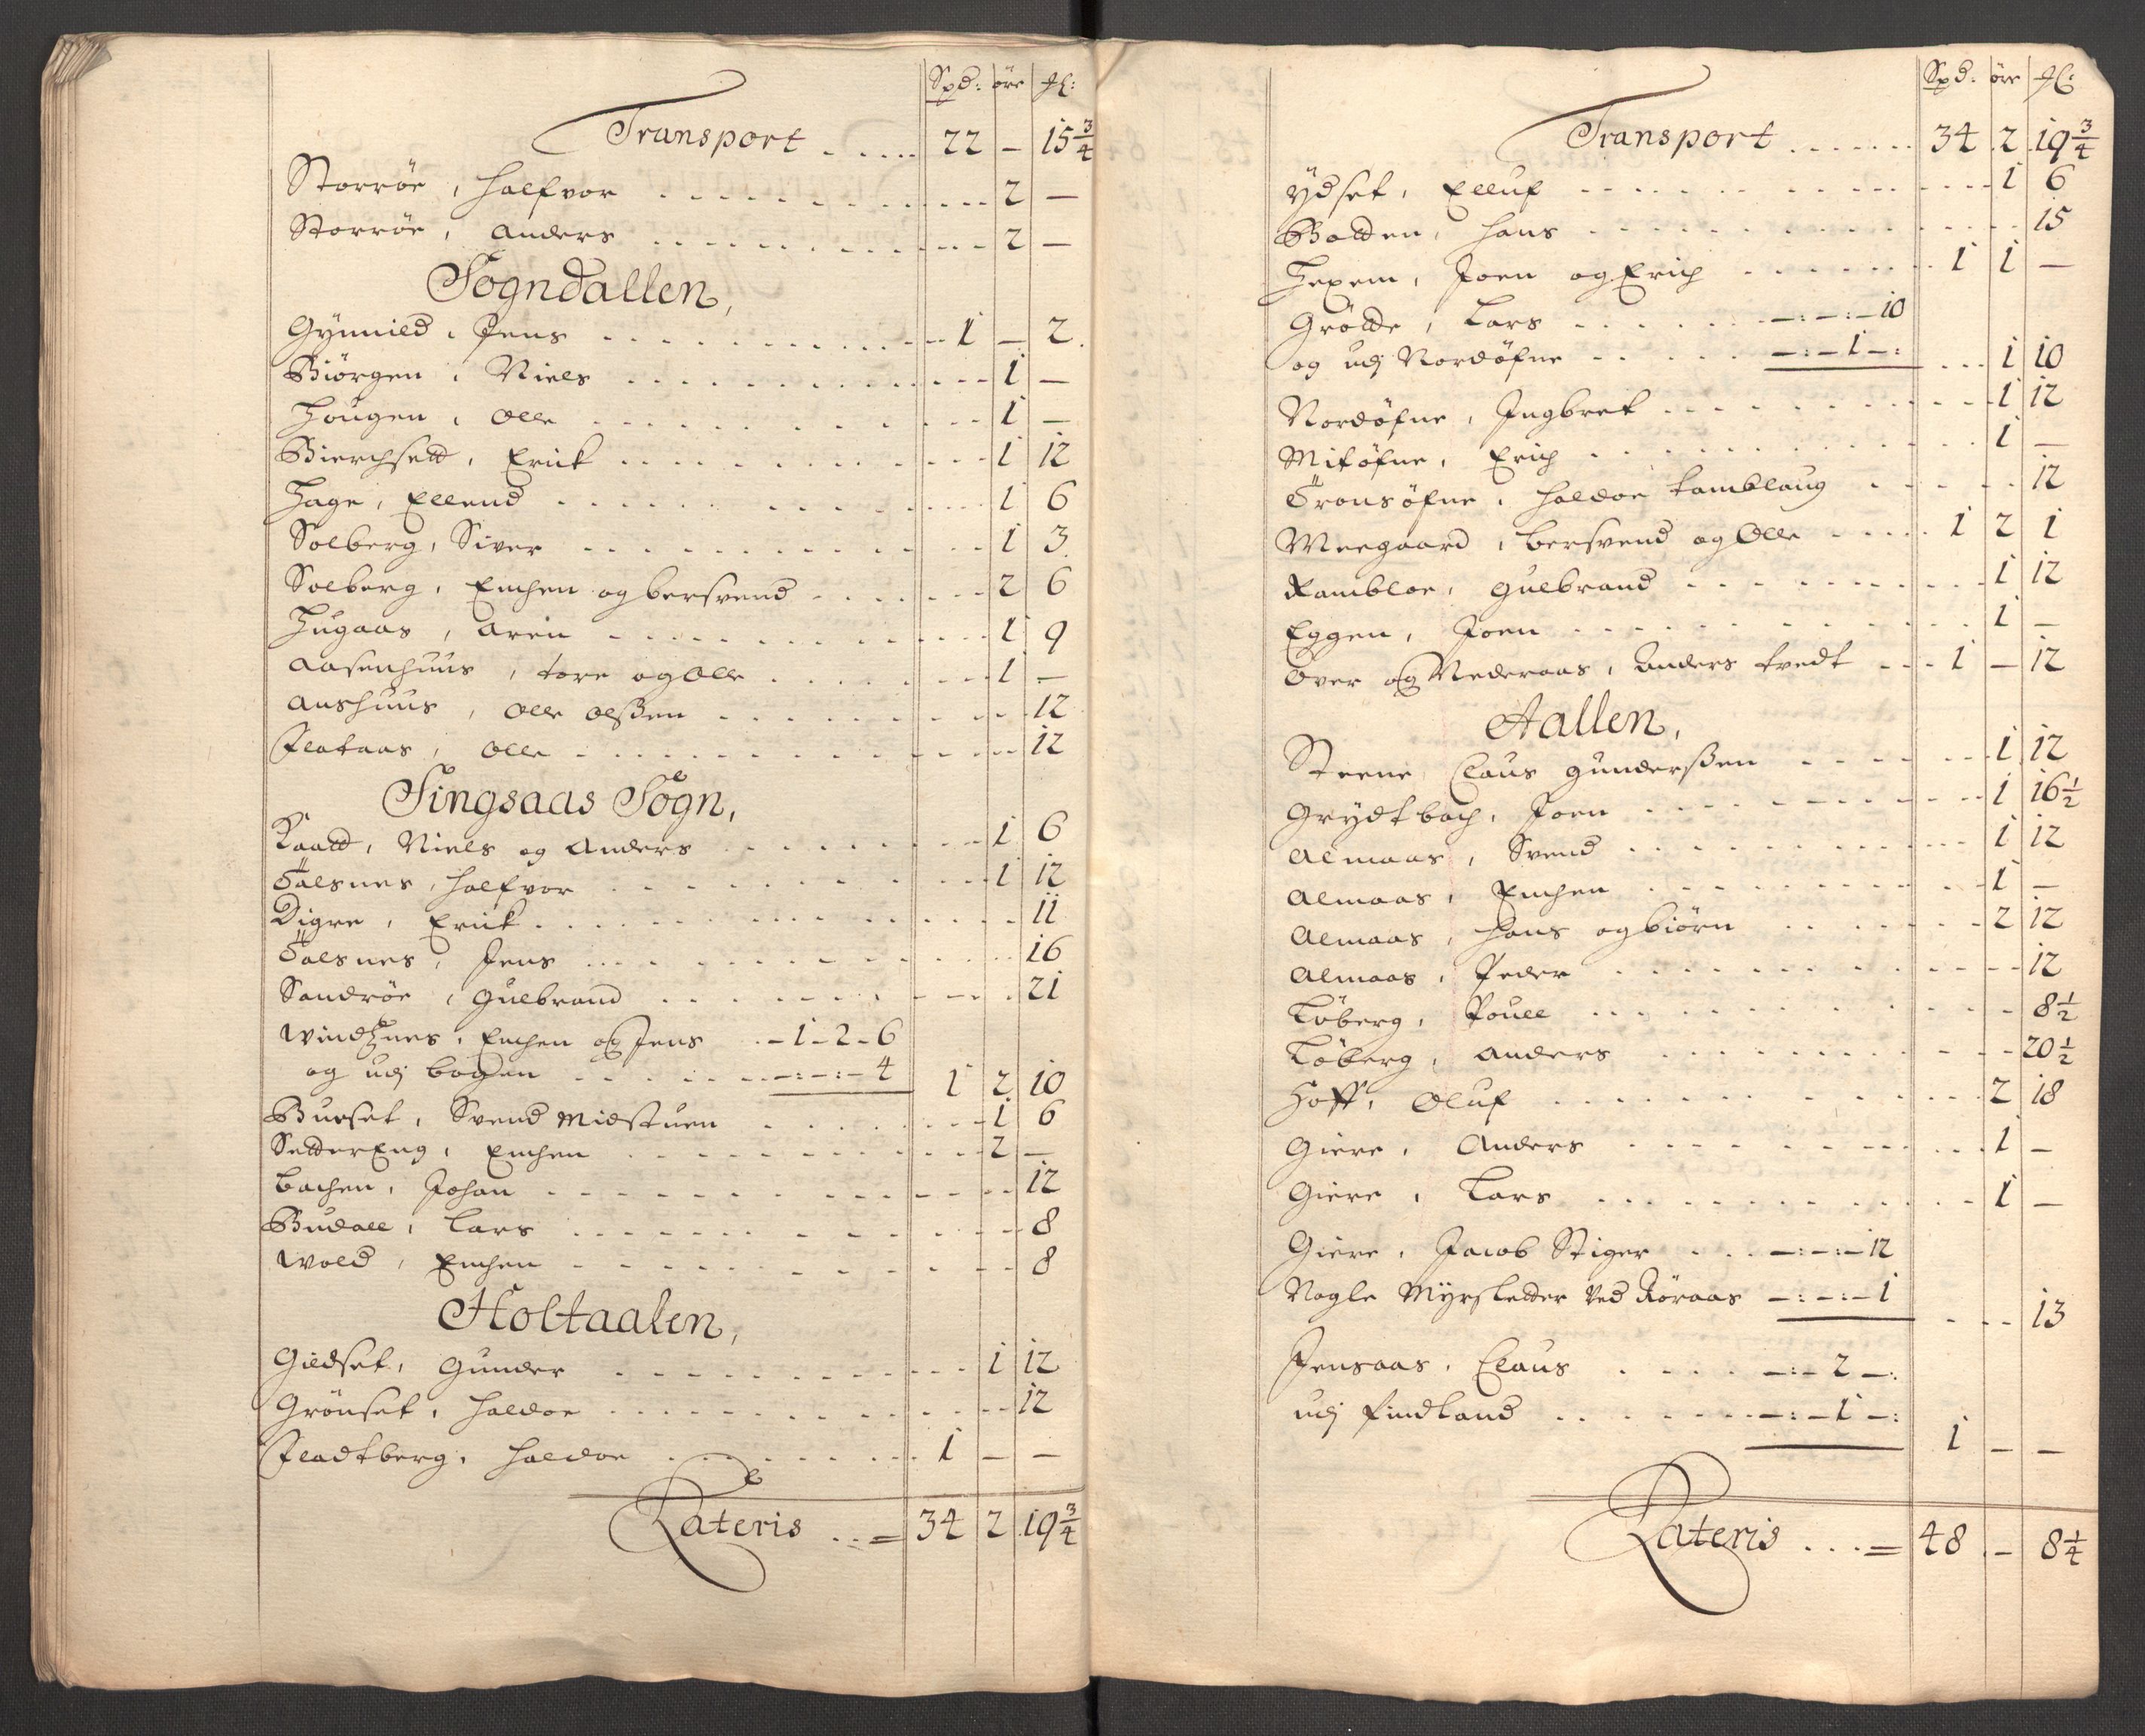 Spd: öre Ml:
Transport ..... 22 – 15¾
Storröe, Halfvor ..... 2 –
Storröe, Anders ..... 2 –
Sogndallen,
Gynnild, Jens ..... 1 – 2.
Biörgen, Niels ..... 1 –
Hougen, Olle ..... 1 –
Bierchsett, Erick ..... 1 12
Hage, Ellend ..... 1 6
Solberg, Siver ..... 1 3.
Solberg, Einchen og bersvend ..... 2 6
Hugaas, Aren ..... 1 9
Aasenhuus, Tore og Olle ..... 1 –
Aushuus, Olle Olßen ..... 12
Flataas, Olle ..... 12
Singsaas Sogn,
Kaatt, Niels og Anders ..... 1 6
Talsnes, Halfvor ..... 1 12
Digre, Erick ..... 11
Talsnes, Jens ..... 16
Sandröe, Gulbrand ..... 21
Windznes, Einchen og Jens .. – 1 – 2 – 6
og udj bogen ..... –:–:– 4 1 2 10
Burset, Svend Midstuen ..... 1 6
SetterEng, Einchen ..... 2 –
Bachen, Johan ..... 12
Budall, Lars ..... 8
Wold, Einchen ..... 8
Holtaalen,
Gildset, Gunder ..... 1 12
Grönset, Haldor ..... 12
Fladtberg, Haldor ..... 1 – –
Lateris ..= 34 2 19¾
Spd: öre Ml:
Transport ..... 34 2 19¾
Ydset, Elluf ..... 1 6
Botten, Hans ..... 15
Hexem, Joen og Erich ..... 1 1 –
Grötte, Lars ..... –:–:– 10
og udj Nordöfne ..... –:– 1 –: 1 10
Nordöfne, Ingbret ..... 1 12
Mitöfne, Erich ..... 1 –
Tronsöfne, Haldor tamblaug ..... 12
Meegaard, bersvend og Olle ..... 1 2 1
Rambloe, Gulbrand ..... 1 12
Eggen, Joen ..... 1 –
Over og Nederaas, Anders tvedt ... 1 – 12
Aallen,
Steene, Claus Gunderßen ..... 1 12
Grydtbach, Joen ..... 1 16½
Almaas, Svend ..... 1 12
Almaas, Einchen ..... 1 –
Almaas, Hans og biörn ..... 2 12
Almaas, Peder ..... 12
Löberg, Pouell ..... 8½
Löberg, Anders ..... 20½
Hoff, Oluf ..... 2 18
Giere, Anders ..... 1 –
Giere, Lars ..... 1 –
Giere, Jacob Stiger ... –:–:– 12
Nogle Myrsletter ved Röraas –:–:– 1 13
Jensaas, Claus ..... –:– 2 –:
udj Findland ..... –:– 1 –: 1 – –
Lateris ...= 48 – 8¼